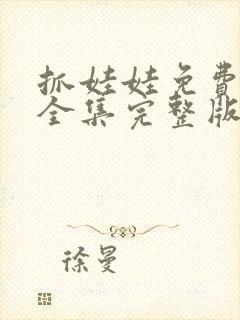 抓娃娃免费
全集完整版
徐曼